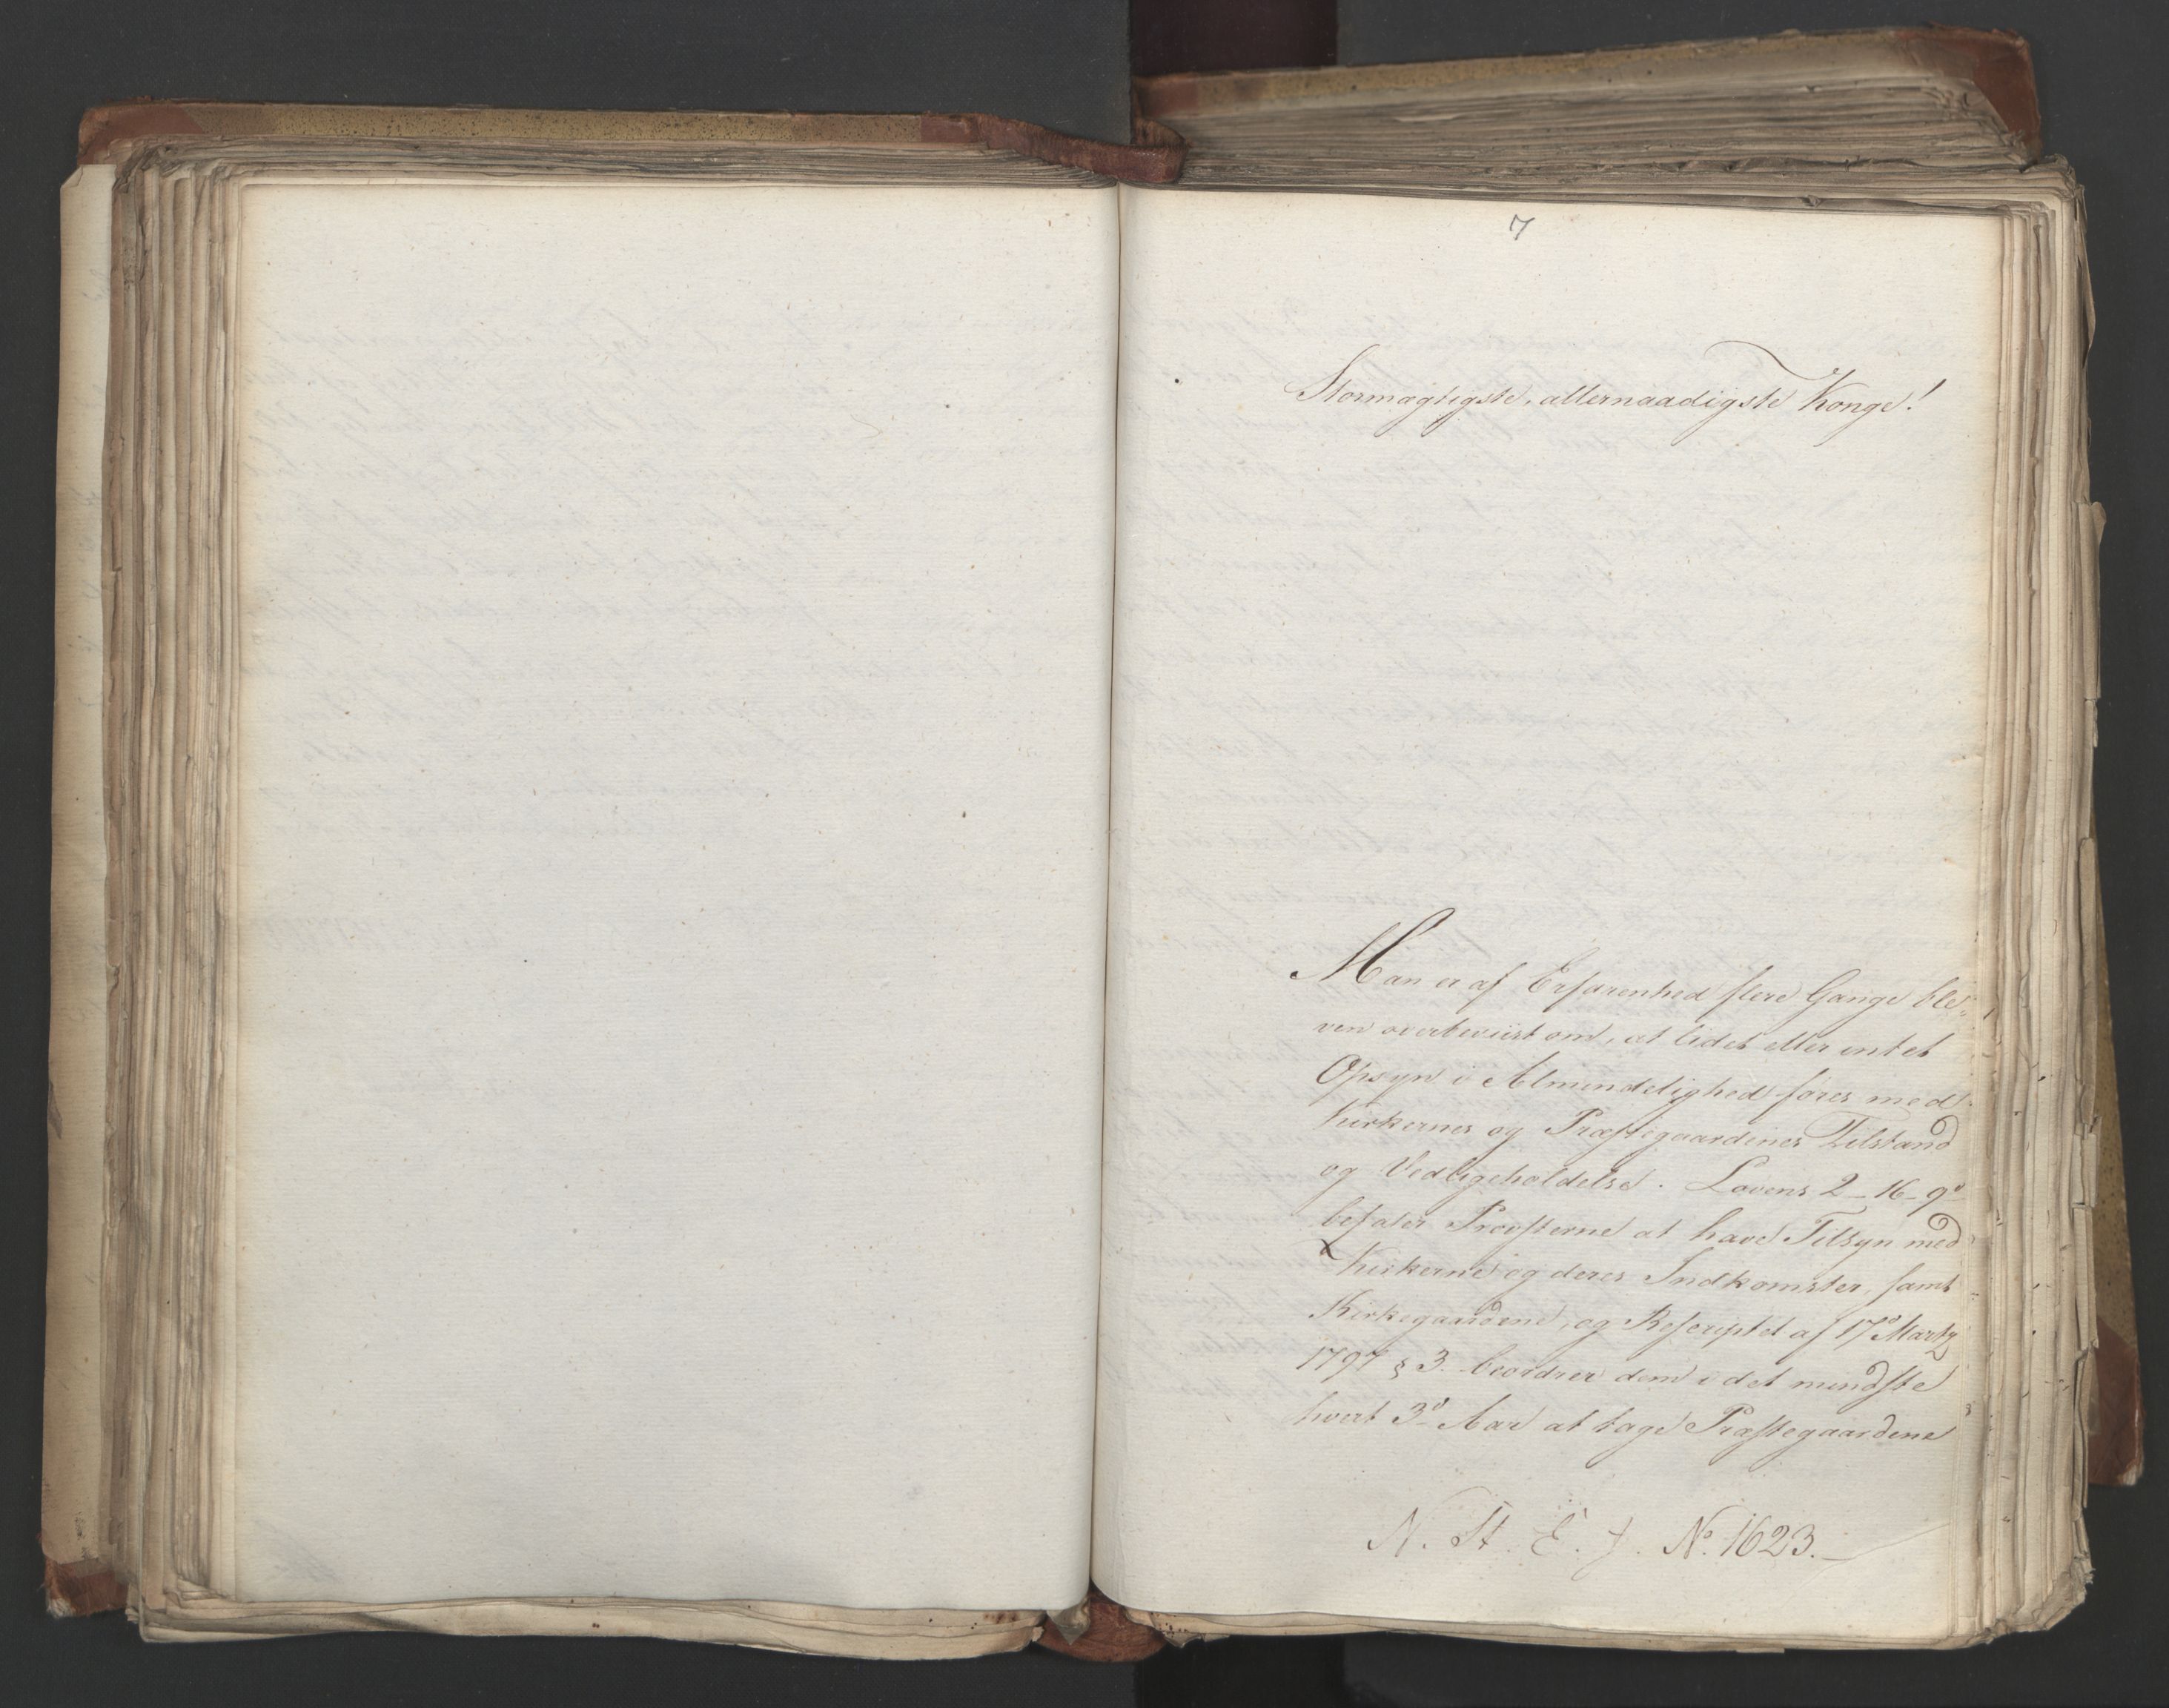 7
Stormægtigste, allernaadigste Konge!
Man er af Erfarenhed flere Gange ble-
ven overbeviist om, at lidet eller intet
Opsyn i Almindelighed føres med
Kirkernes og Præstegaardenes Tilstand
og Vedligeholdelse. Lovens 2-16-9d
befaler Provsterne at have Tilsyn med
Kirkerne og deres Indkomster, samt
Kirkegaardene, og Rescriptet af 17d Marty
1797 § 3. beordrer dem i det mindste
hvert 3d Aar at tage Præstegaardene
N. St. E. J. No. 1623.